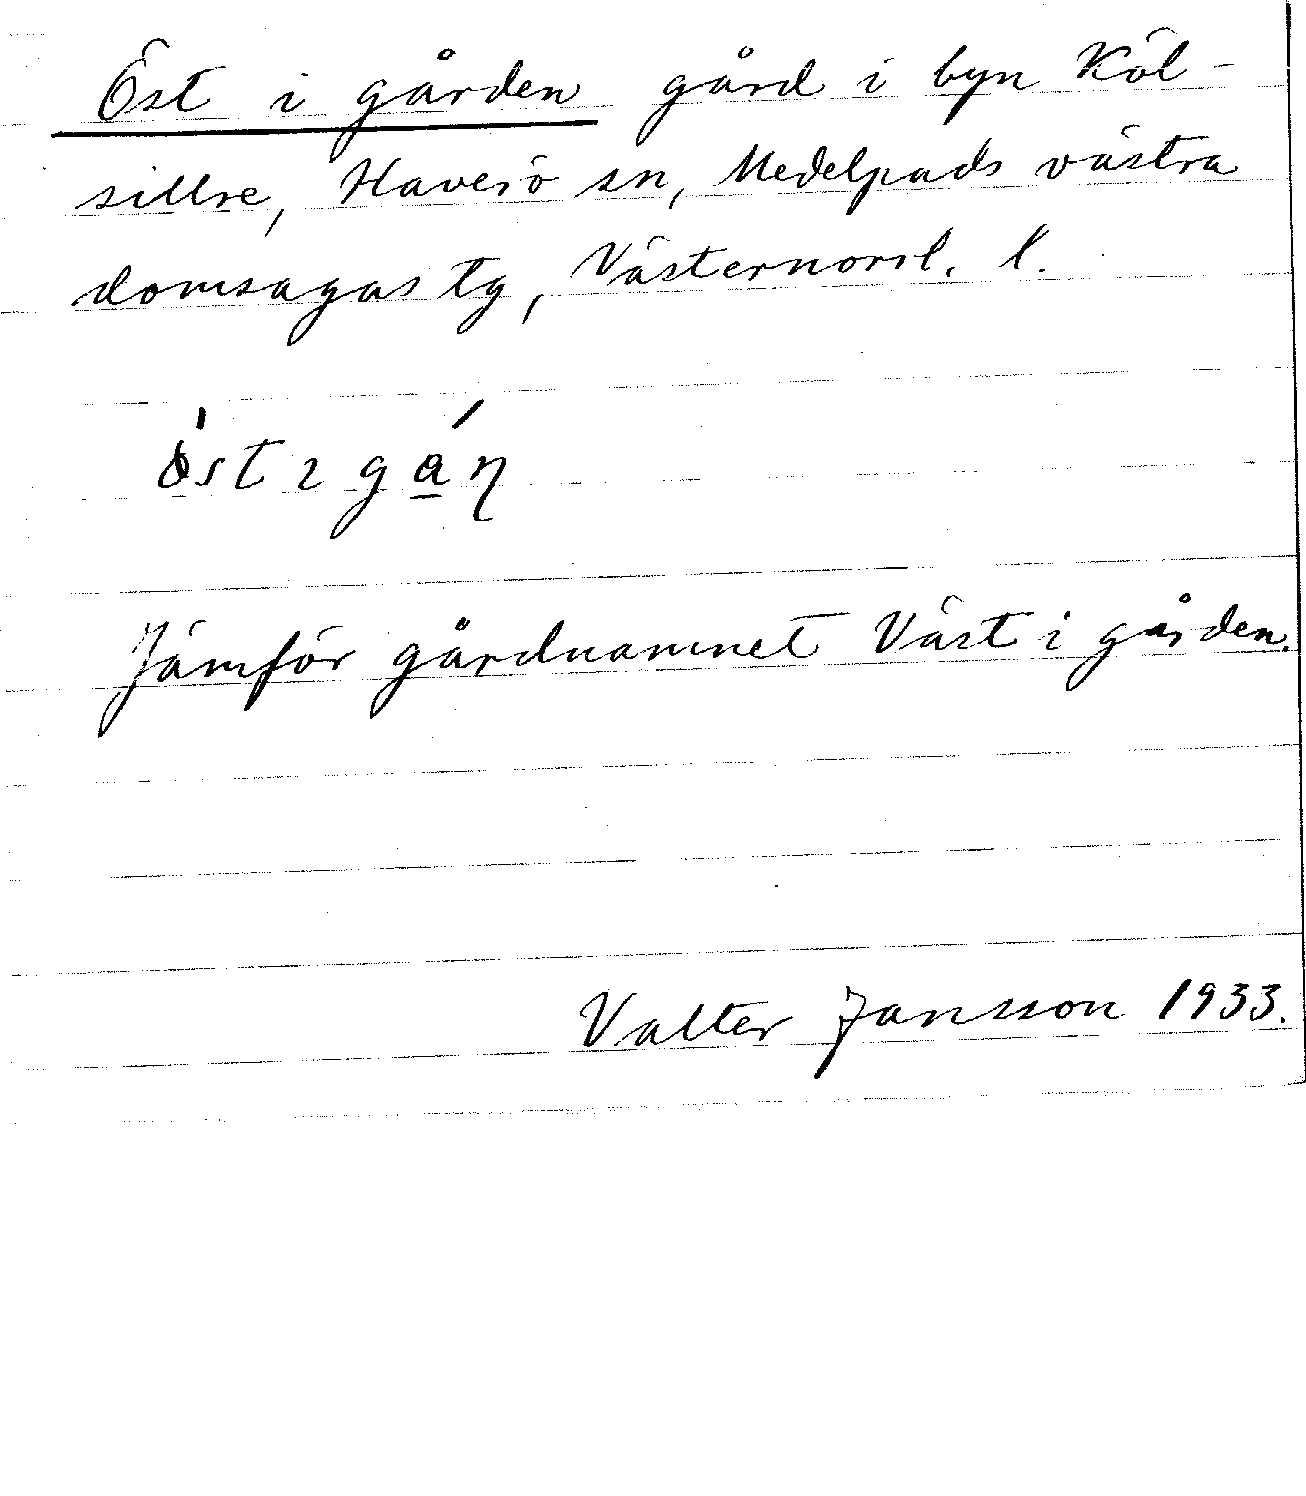 Öst i gården gård i byn Köl-
sillre, Haverö sn, Medelpads västra
domsagas tg, Västernorrl. l.
Jämför gårdnamnet Väst i gården.
Valter Jansson 1933.